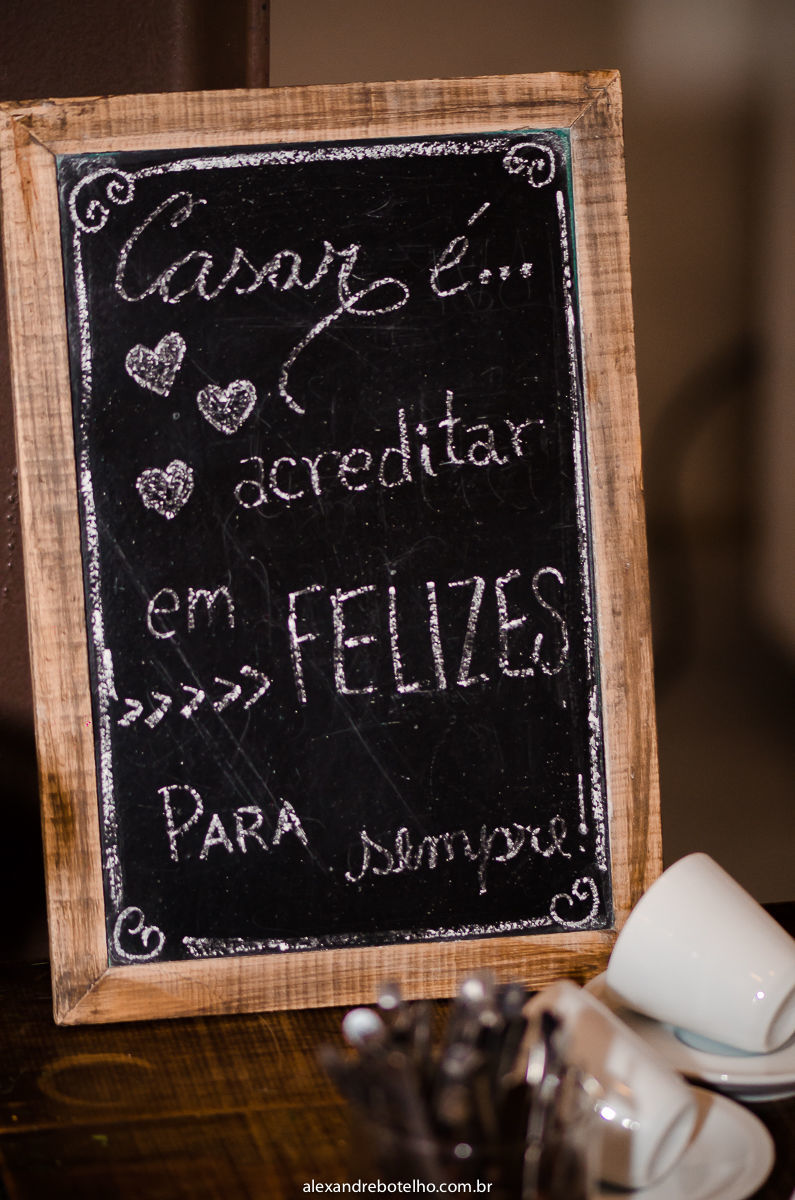 Casar é...
acreditar
em FELIZES
>>>>>
PARA sempre!
alexandrebotelho.com.br